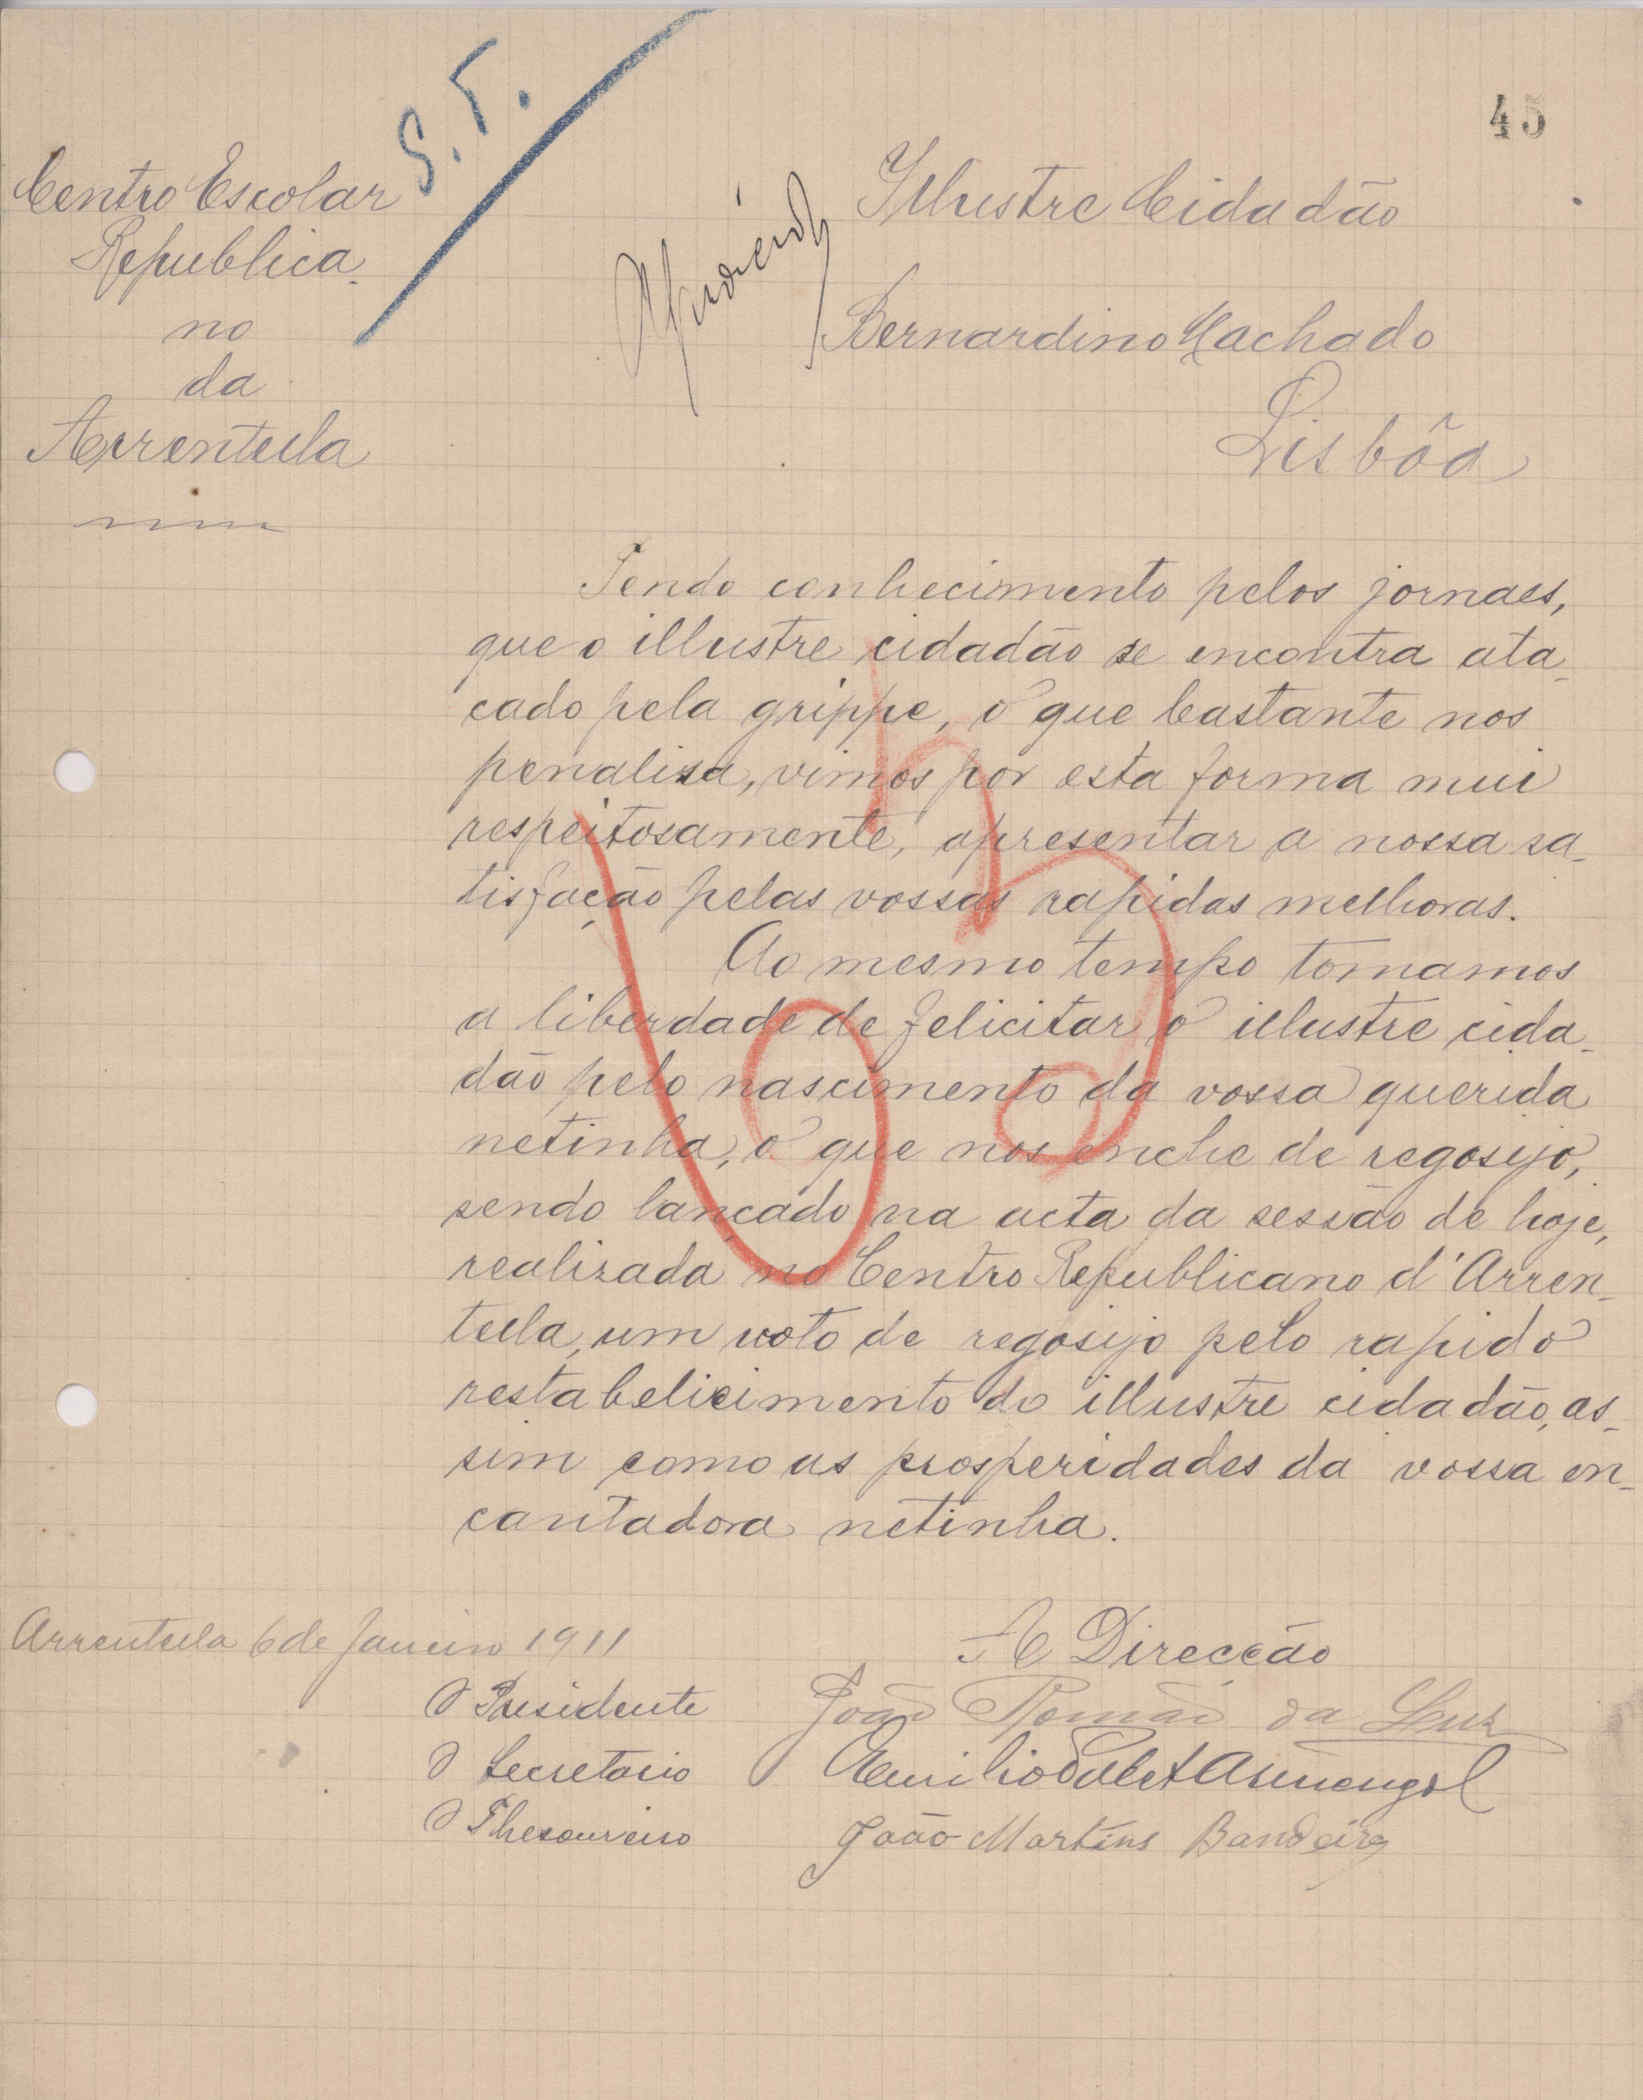 45
S. T.
Centro Escolar
Republica-
no
da
Arrentella
Illustre Cidadão
Bernardino Machado
Lisbôa
Tendo conhecimento pelos jornaes,
que o illustre cidadão se encontra ata-
cado pela grippe, o que bastante nos
penalisa, vimos por esta forma mui
respeitosamente, apresentar a nossa sa-
tisfação pelas vossas rapidas melhoras.
Ao mesmo tempo tomamos
a liberdade de felicitar o illustre cida-
dão pelo nascimento da vossa querida
netinha, o que nos enche de regosijo,
sendo lançado na acta da sessão de hoje,
realisada no Centro Republicano d'Arren-
tella, um voto de regosijo pelo rapido
restabelicimento do illustre cidadão, as-
sim como as prosperidades da vossa en-
cantadora netinha.
Arrentella 6 de Janeiro 1911
A Direcção
O Presidente João Romão da Luz
O Secretario Emilio
O Thesoureiro João Martins Bandeira